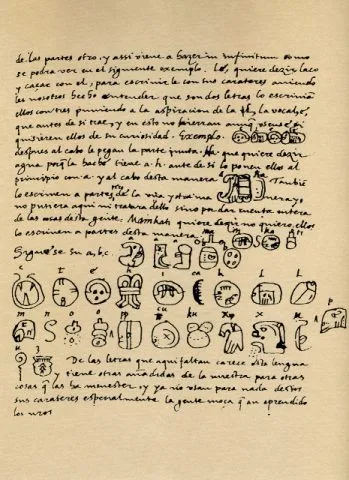 de las partes otro, y assi viene a hazer in infinitum como
se podra ver en el siguiente exemplo. Lé, quiere dezir laço
y caçar con el, para escrivirle con sus carateres aviendo
les nosotros hecho entender que son dos letras lo escrivian
ellos con tres puniendo a la aspiracion de la l, la vocal é,
que antes de si trae, y en esto no hierran aunq si
quisieren ellos de su curiosidad. Exemplo.
despues al cabo le pegan la parte junta. Ha que quiere dezir
agua porq la hache tiene a.h. ante de si la ponen ellos al
principio con a. y al cabo desta manera a ha Tambié
lo escriven a partes de la una y otra manera, yo
no pusiera aqui ni tratara dello sino por dar cuenta entera
de las cosas desta gente. Mainkati quiere dezir no quiero, ellos
lo escriven a partes desta manera. ma i n ka ti
Siguese su a, b, c a a a b b
c t e h i ca k l l
m n o o pp cu ku x x u p
u z
De las letras que aqui faltan carece esta lengua
y tiene otras añadidas de la nuestra para otras
cosas q las ha menester, y ya no usan para nada destos
sus carateres especialmente la gente moça q an aprendido
los nros